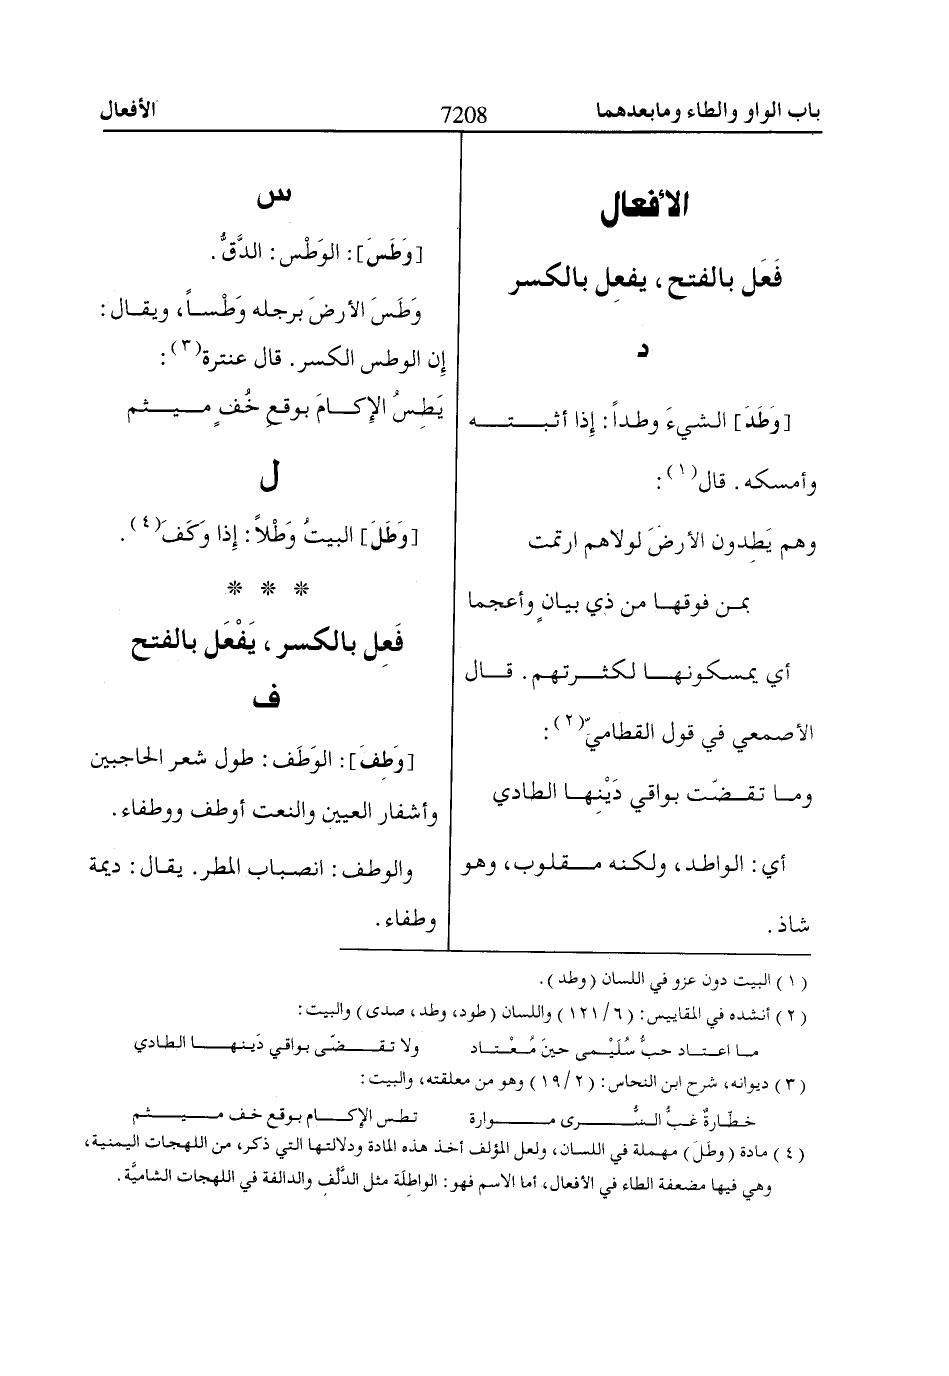 باب الواو والطاء ومابعدهما
7208
الأفعال
الأفعال
فَعَل بالفتح، يفعِل بالكسر
د
[وَطَدَ] الشيءَ وطداً: إذا أثبتـــه
وأمسكه. قال(١):
وهم يَطِدون الأرضَ لولاهم ارتمت
بمن فوقها من ذي بيانٍ وأعجما
أي يمسكونها لكثرتهم. قال
الأصمعي في قول القطاميّ(٢):
وما تقضّت بواقي دَيْنِها الطادي
أي: الواطد، ولكنه مقلوب، وهو
شاذ.
س
[وَطَسَ]: الوَطْس: الدَّقُّ.
وَطَسَ الأرضَ برجله وَطْساً، ويقال:
إن الوطس الكسر. قال عنترة(٣):
يَطِسُ الإكامَ بوقعِ خُفٍ ميثم
ل
[وَطَلَ] البيتُ وَطْلاً: إذا وَكَفَ(٤).
* * *
فَعِل بالكسر، يَفْعَل بالفتح
ف
[وَطِفَ]: الوَطَف: طول شعر الحاجبين
وأشفار العيين والنعت أوطف ووطفاء.
والوطف: انصباب المطر. يقال: ديمة
وطفاء.
(١) البيت دون عزو في اللسان (وطد).
(٢) أنشده في المقاييس: (١٢١/٦) واللسان (طود، وطد، صدى) والبيت:
ما اعتاد حبُّ سُلَيْمى حينَ مُعْتاد ولا تقضّى بواقي دَينها الطادي
(٣) ديوانه، شرح ابن النحاس: (١٩/٢) وهو من معلقته، والبيت:
خطّارةٌ غبُّ السُّرى موارة تطس الإكام بوقع خف ميثم
(٤) مادة (وطَلَ) مهملة في اللسان، ولعل المؤلف أخذ هذه المادة ودلالتها التي ذكر، من اللهجات اليمنية،
وهي فيها مضعفة الطاء في الأفعال، أما الاسم فهو: الواطِلَة مثل الدَّلْفِ والدالفة في اللهجات الشاميَّة.